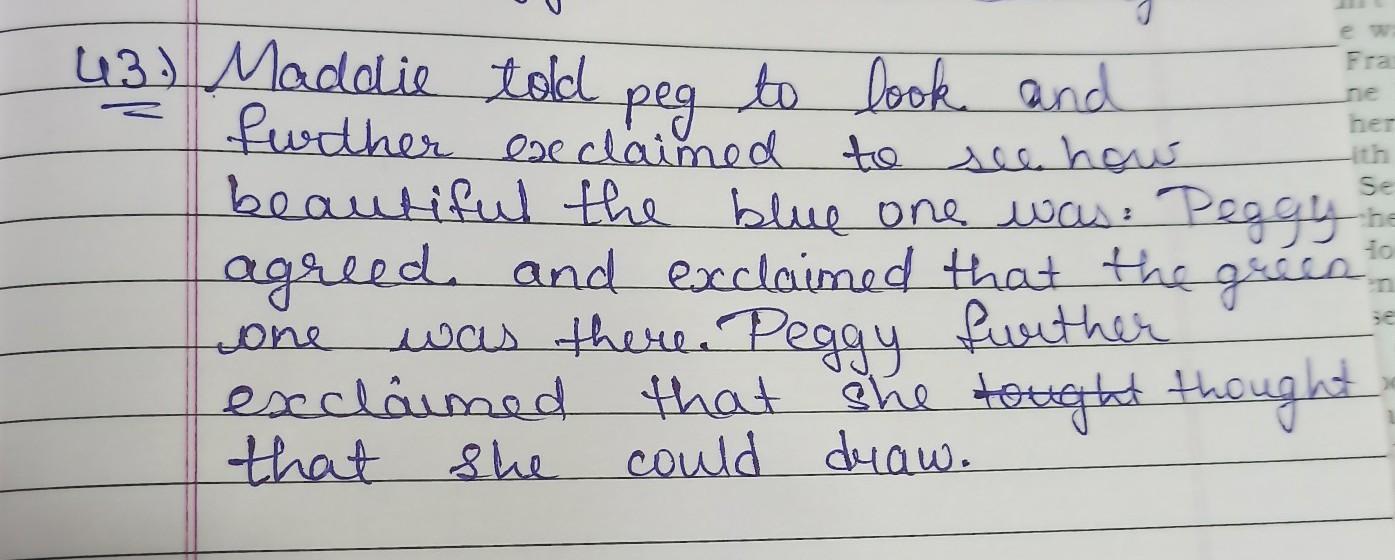 43.) Maddie told peg to look and
further exclaimed to see how
beautiful the blue one was. Peggy
agreed. and exclaimed that the green
one was there. Peggy further
exclaimed that she tought thought
that she could draw.
e w
Fra
ne
her
ith
Se